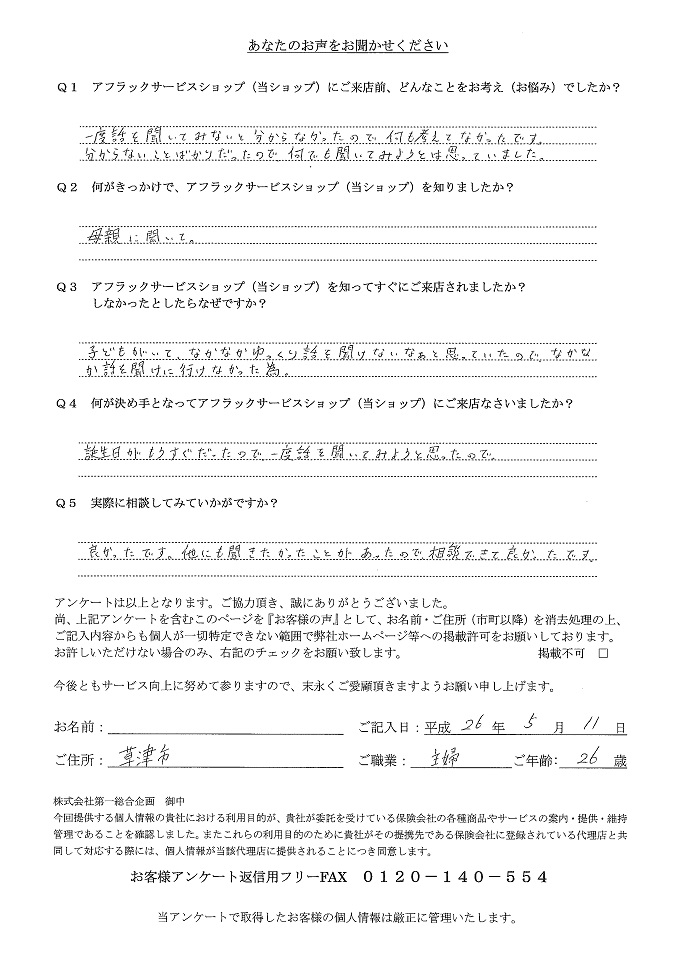 あなたのお声をお聞かせください
Ｑ１　アフラックサービスショップ（当ショップ）にご来店前、どんなことをお考え（お悩み）でしたか？
一度話を聞いてみないと分からなかったので、何も考えてなかったです。
分からないことばかりだったので何でも聞いてみようとは思っていました。
Ｑ２　何がきっかけで、アフラックサービスショップ（当ショップ）を知りましたか？
母親に聞いて。
Ｑ３　アフラックサービスショップ（当ショップ）を知ってすぐにご来店されましたか？
しなかったとしたらなぜですか？
子どもがいて、なかなかゆっくり話を聞けないなぁと思っていたので、なかな
か話を聞けに行けなかった為。
Ｑ４　何が決め手となってアフラックサービスショップ（当ショップ）にご来店なさいましたか？
誕生日がもうすぐだったので、一度話を聞いてみようと思ったので。
Ｑ５　実際に相談してみていかがですか？
良かったです。他にも聞きたかったことがあったので、相談できて良かったです。
アンケートは以上となります。ご協力頂き、誠にありがとうございました。
尚、上記アンケートを含むこのページを『お客様の声』として、お名前・ご住所（市町以降）を消去処理の上、
ご記入内容からも個人が一切特定できない範囲で弊社ホームページ等への掲載許可をお願いしております。
お許しいただけない場合のみ、右記のチェックをお願い致します。　掲載不可　□
今後ともサービス向上に努めて参りますので、末永くご愛顧頂きますようお願い申し上げます。
お名前：　ご記入日：平成 26 年 5 月 11 日
ご住所：草津市　ご職業：主婦　ご年齢：26 歳
株式会社第一総合企画　御中
今回提供する個人情報の貴社における利用目的が、貴社が委託を受けている保険会社の各種商品やサービスの案内・提供・維持
管理であることを確認しました。またこれらの利用目的のために貴社がその提携先である保険会社に登録されている代理店と共
同して対応する際には、個人情報が当該代理店に提供されることにつき同意します。
お客様アンケート返信用フリーFAX　０１２０－１４０－５５４
当アンケートで取得したお客様の個人情報は厳正に管理いたします。